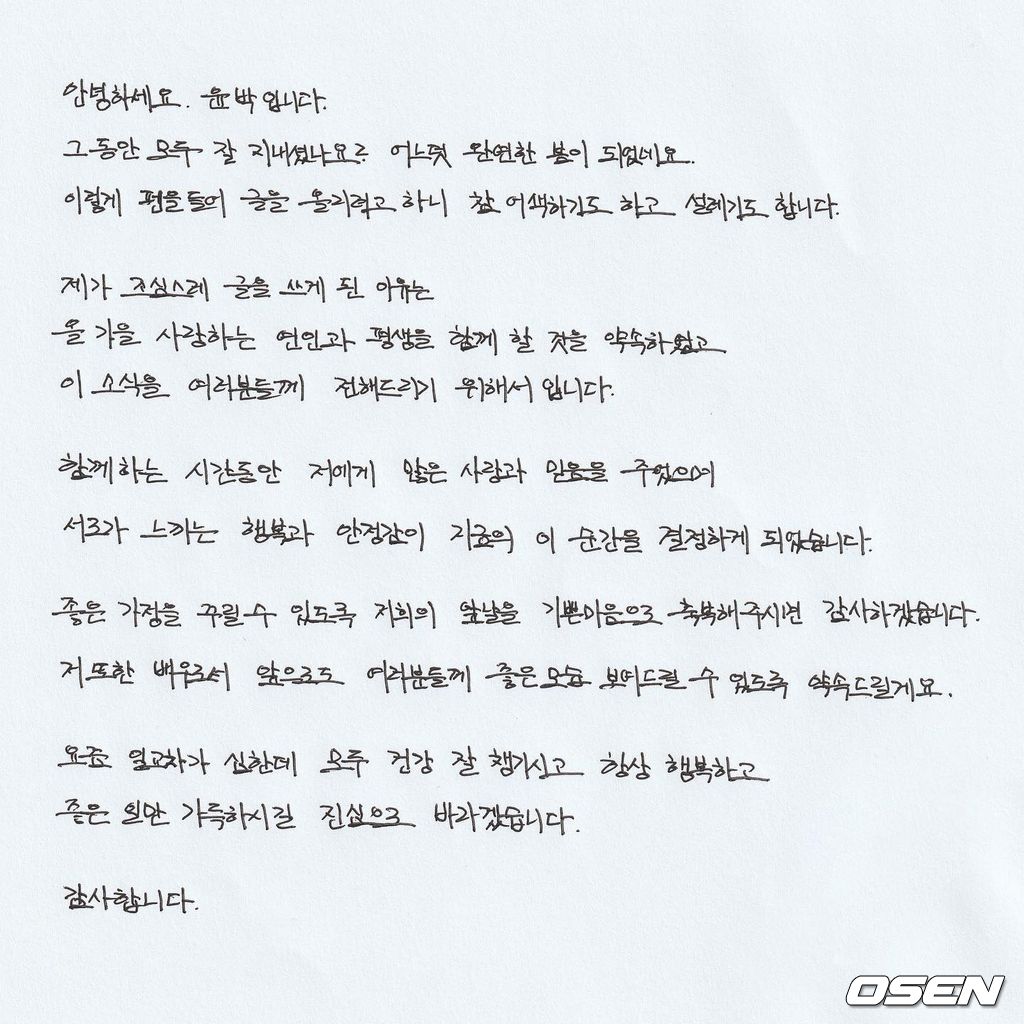 안녕하세요. 윤박입니다.
그동안 모두 잘 지내셨나요? 어느덧 완연한 봄이 되었네요.
이렇게 펜을 들어 글을 올리려고 하니 참 어색하기도 하고 설레기도 합니다.
제가 조심스레 글을 쓰게 된 이유는
올 가을 사랑하는 연인과 평생을 함께 할 것을 약속하였고
이 소식을 여러분들께 전해드리기 위해서 입니다.
함께하는 시간동안 저에게 많은 사랑과 믿음을 주었으며
서로가 느끼는 행복과 안정감이 지금의 이 순간을 결정하게 되었습니다.
좋은 가정을 꾸릴 수 있도록 저희의 앞날을 기쁜마음으로 축복해주시면 감사하겠습니다.
저 또한 배우로서 앞으로도 여러분들께 좋은모습 보여드릴 수 있도록 약속드릴게요.
요즘 일교차가 심한데 모두 건강 잘 챙기시고 항상 행복하고
좋은 일만 가득하시길 진심으로 바라겠습니다.
감사합니다.
OSEN